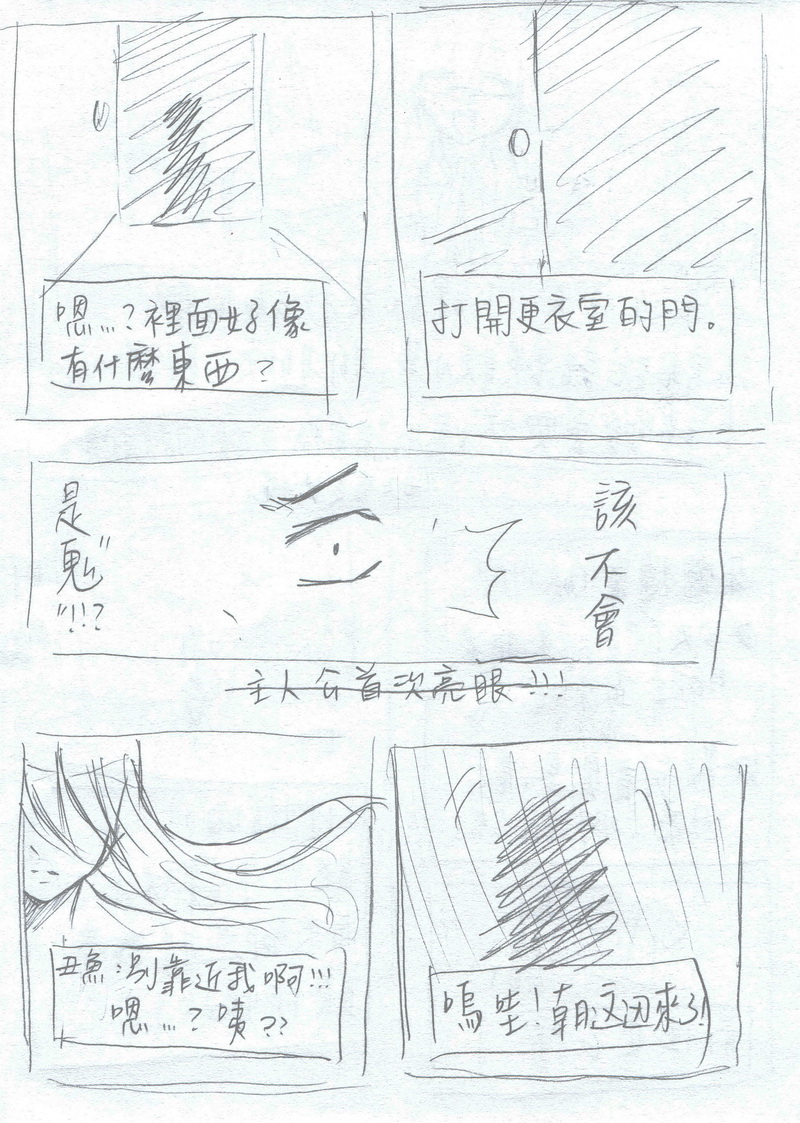 打開更衣室的門。
嗯…?裡面好像
有什麼東西?
該不會
是"鬼"!!?
主人公首次亮眼!!!
嗚哇!朝這边來了!
丑魚:別靠近我啊!!!
嗯…?咦??